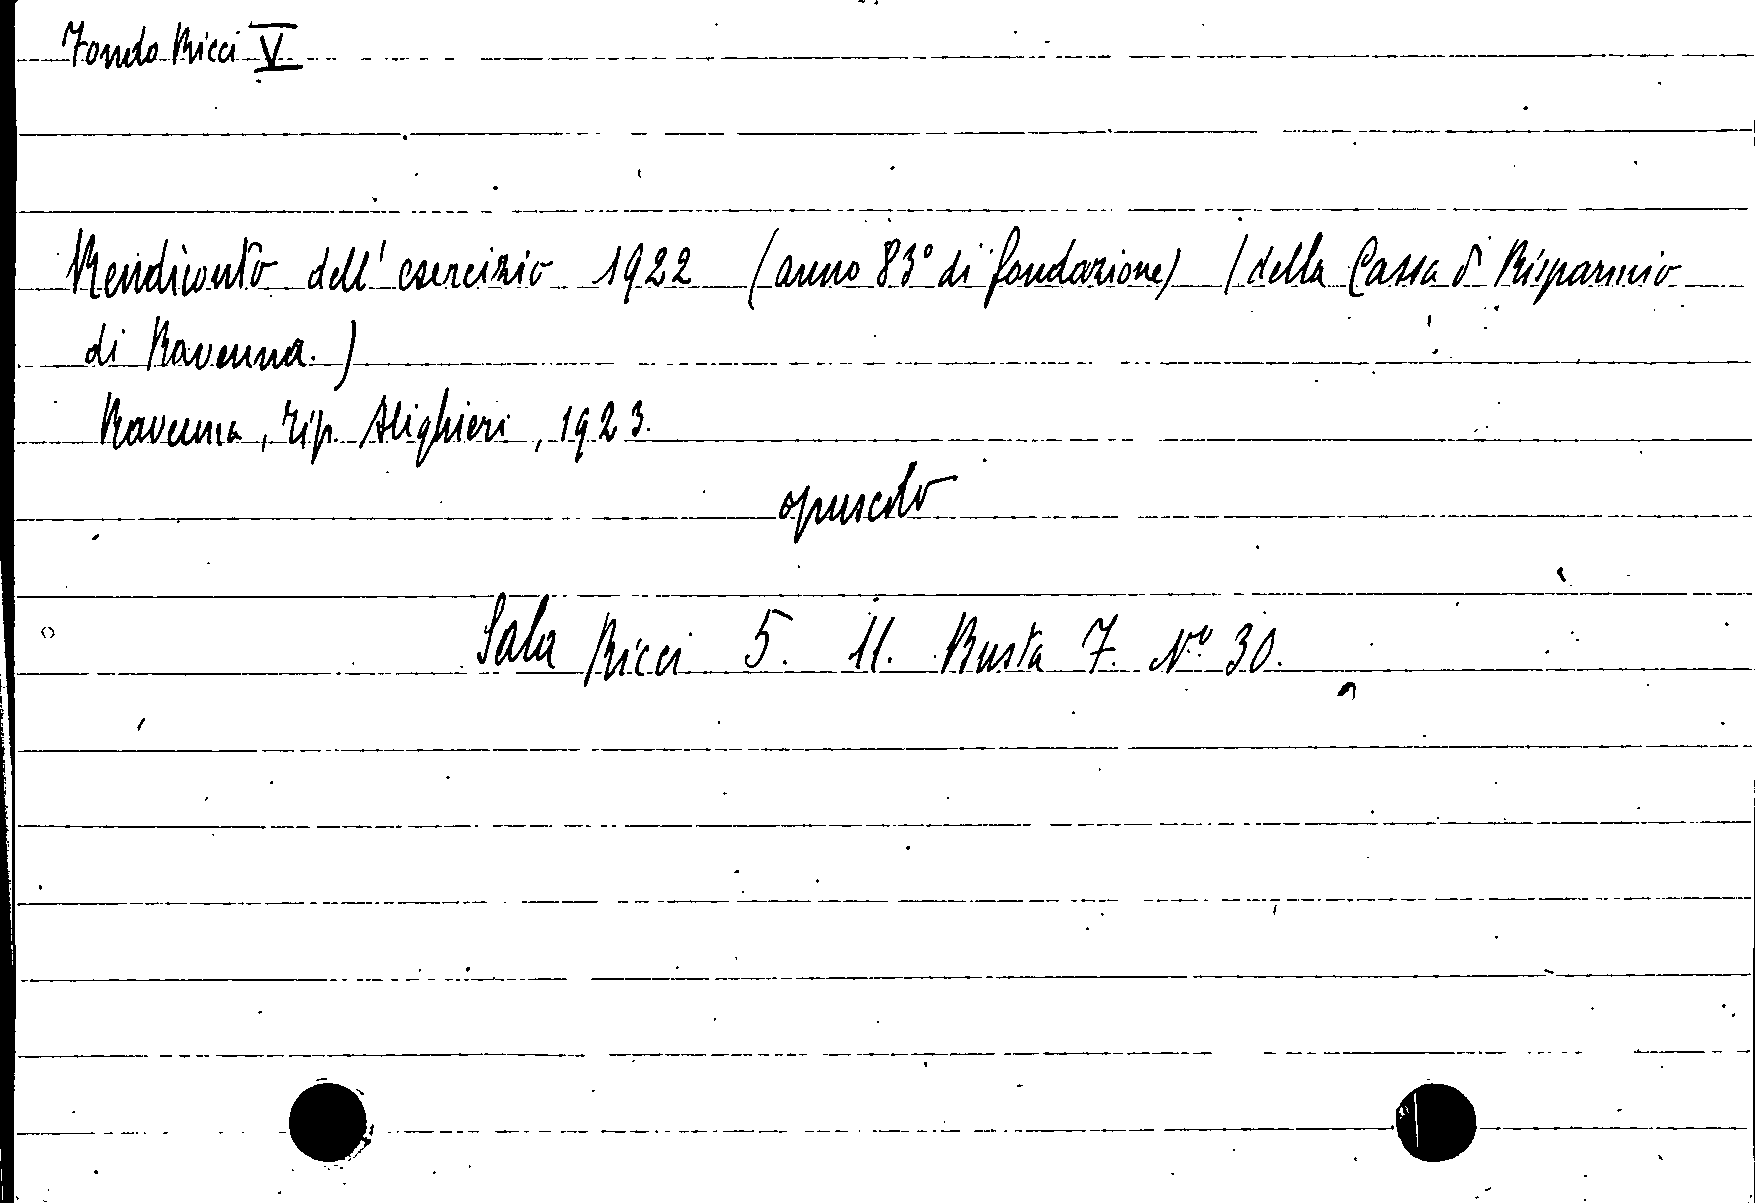 Fondo Ricci V
Rendiconto dell'esercizio 1922 (anno 83° di fondazione) (della Cassa d Risparmio
di Ravenna.)
Ravenna, Tip. Alighieri, 1923.
opuscolo
Sala Ricci 5. 11. Busta 7. N° 30.